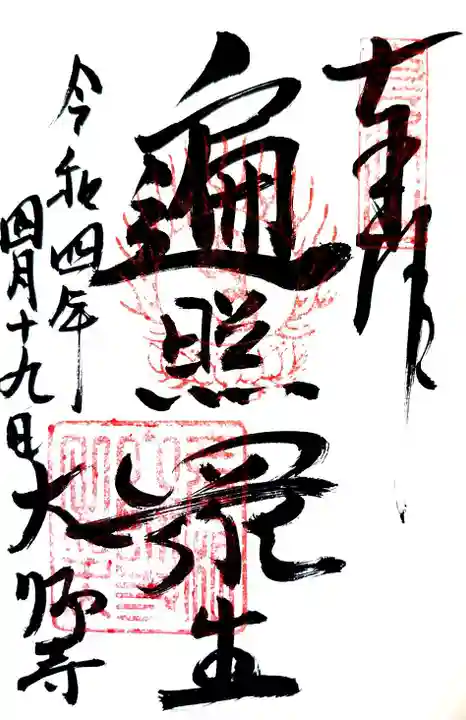 奉拝
遍照衆生
令和四年
四月十九日
大師寺